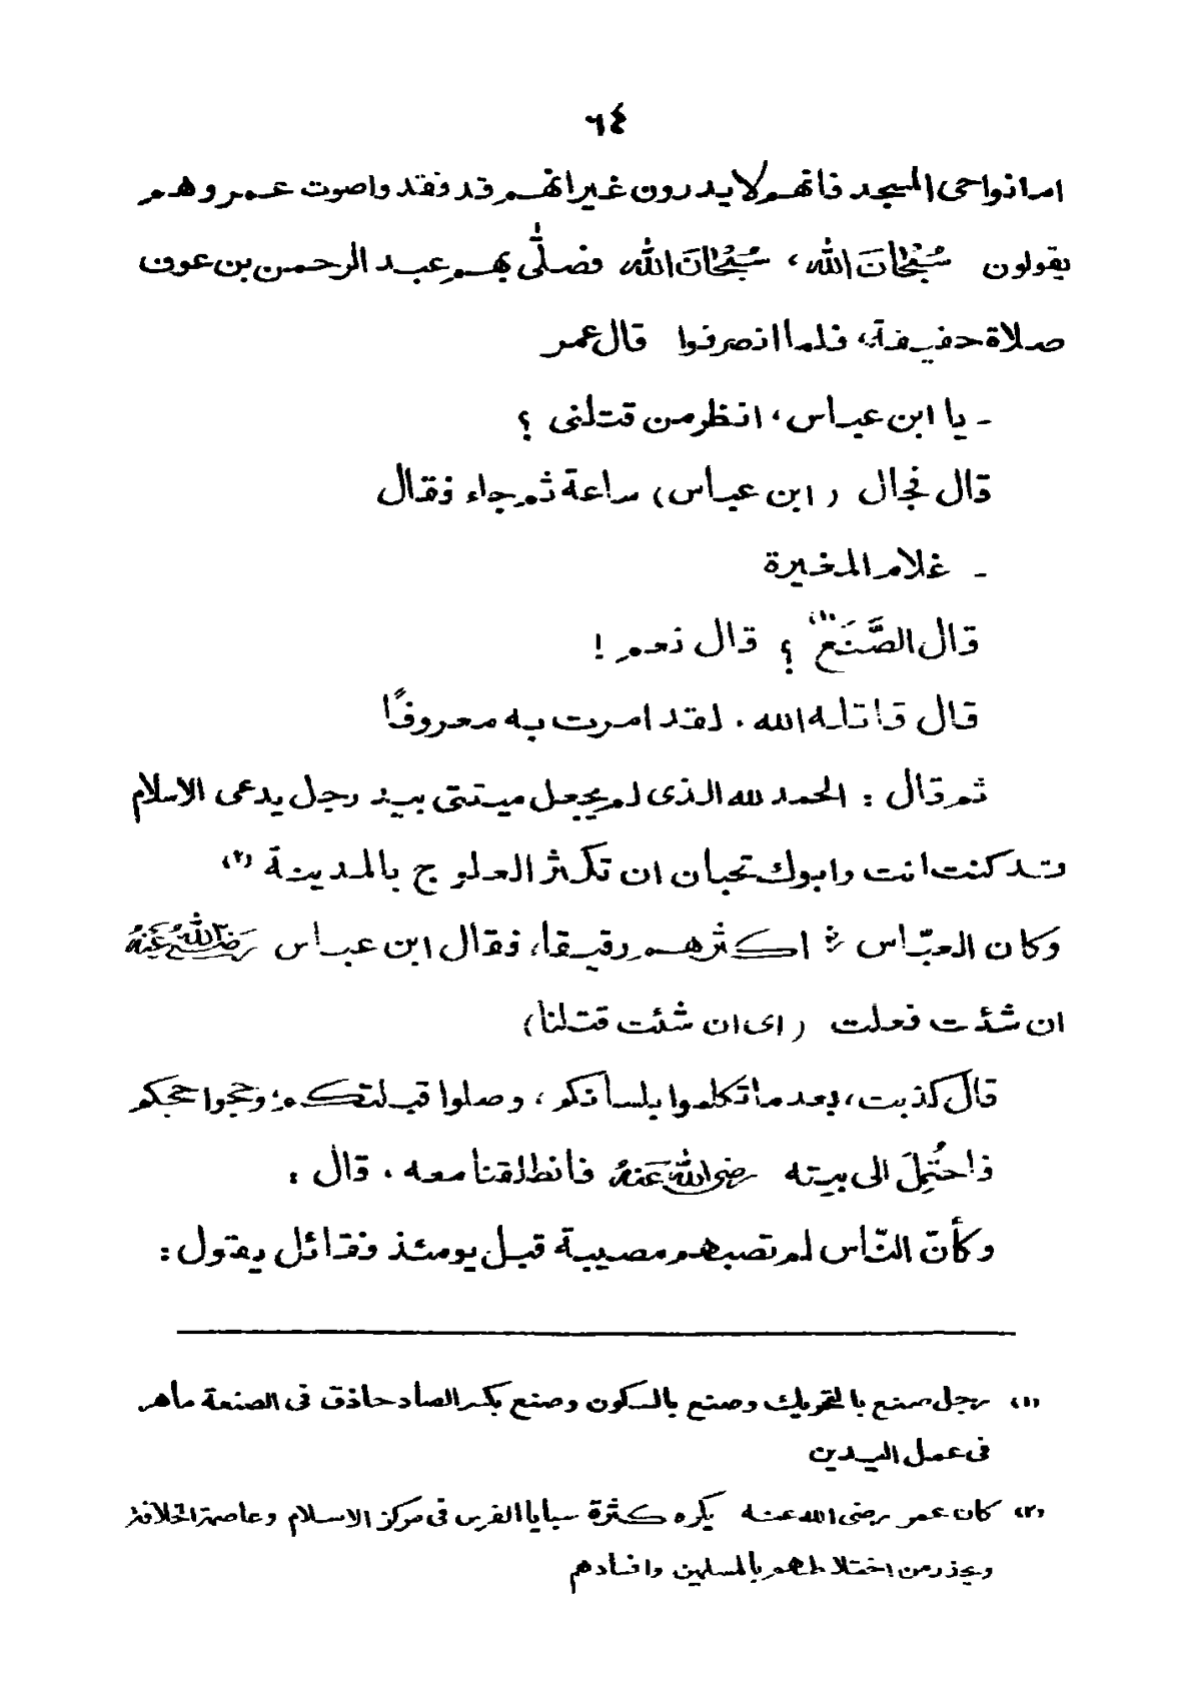 ٦٤
اما نواحى المسجد فانهم لا يدرون غير انهم قد فقدوا صوت عمر وهم
يقولون سُبْحَانَ الله، سُبْحَانَ الله فصلّٰى بهم عبد الرحمن بن عوف
صلاة خفيفة، فلما انصرفوا قال عمر
- يا ابن عباس، انظر من قتلنى ؟
قال فجال (ابن عباس) ساعة ثم جاء فقال
- غلام المغيرة
قال الصَّنَع (١) ؟ قال نعم !
قال قاتله الله . لقد امرت به معروفًا
ثم قال : الحمد لله الذى لم يجعل ميتتى بيد رجل يدعى الاسلام
وقد كنت انت وابوك تحبان ان تكثر العلوج بالمدينة (٢)
وكان العبّاس رض اكثرهم رقيقا، فقال ابن عباس رَضِىَ اللهُ عَنْهُ
ان شئت فعلت (اى ان شئت قتلنا)
قال كذبت، بعد ما تكلموا بلسانكم، وصلوا قبلتكم، وحجوا حجكم
فاحتُمِلَ الى بيته رضى الله عَنهُ فانطلقنا معه . قال :
وكأنّ النّاس لم تصبهم مصيبة قبل يومئذ فقائل يقول :
(١) رجل صنع بالتحريك وصنع بالسكون وصنع بكسر الصاد حاذق فى الصنعة ماهر
فى عمل اليدين
(٢) كان عمر رضى الله عنه يكره كثرة سبايا الفرس فى مركز الاسلام وعاصمة الخلافة
ويحذر من اختلاطهم بالمسلمين وافسادهم